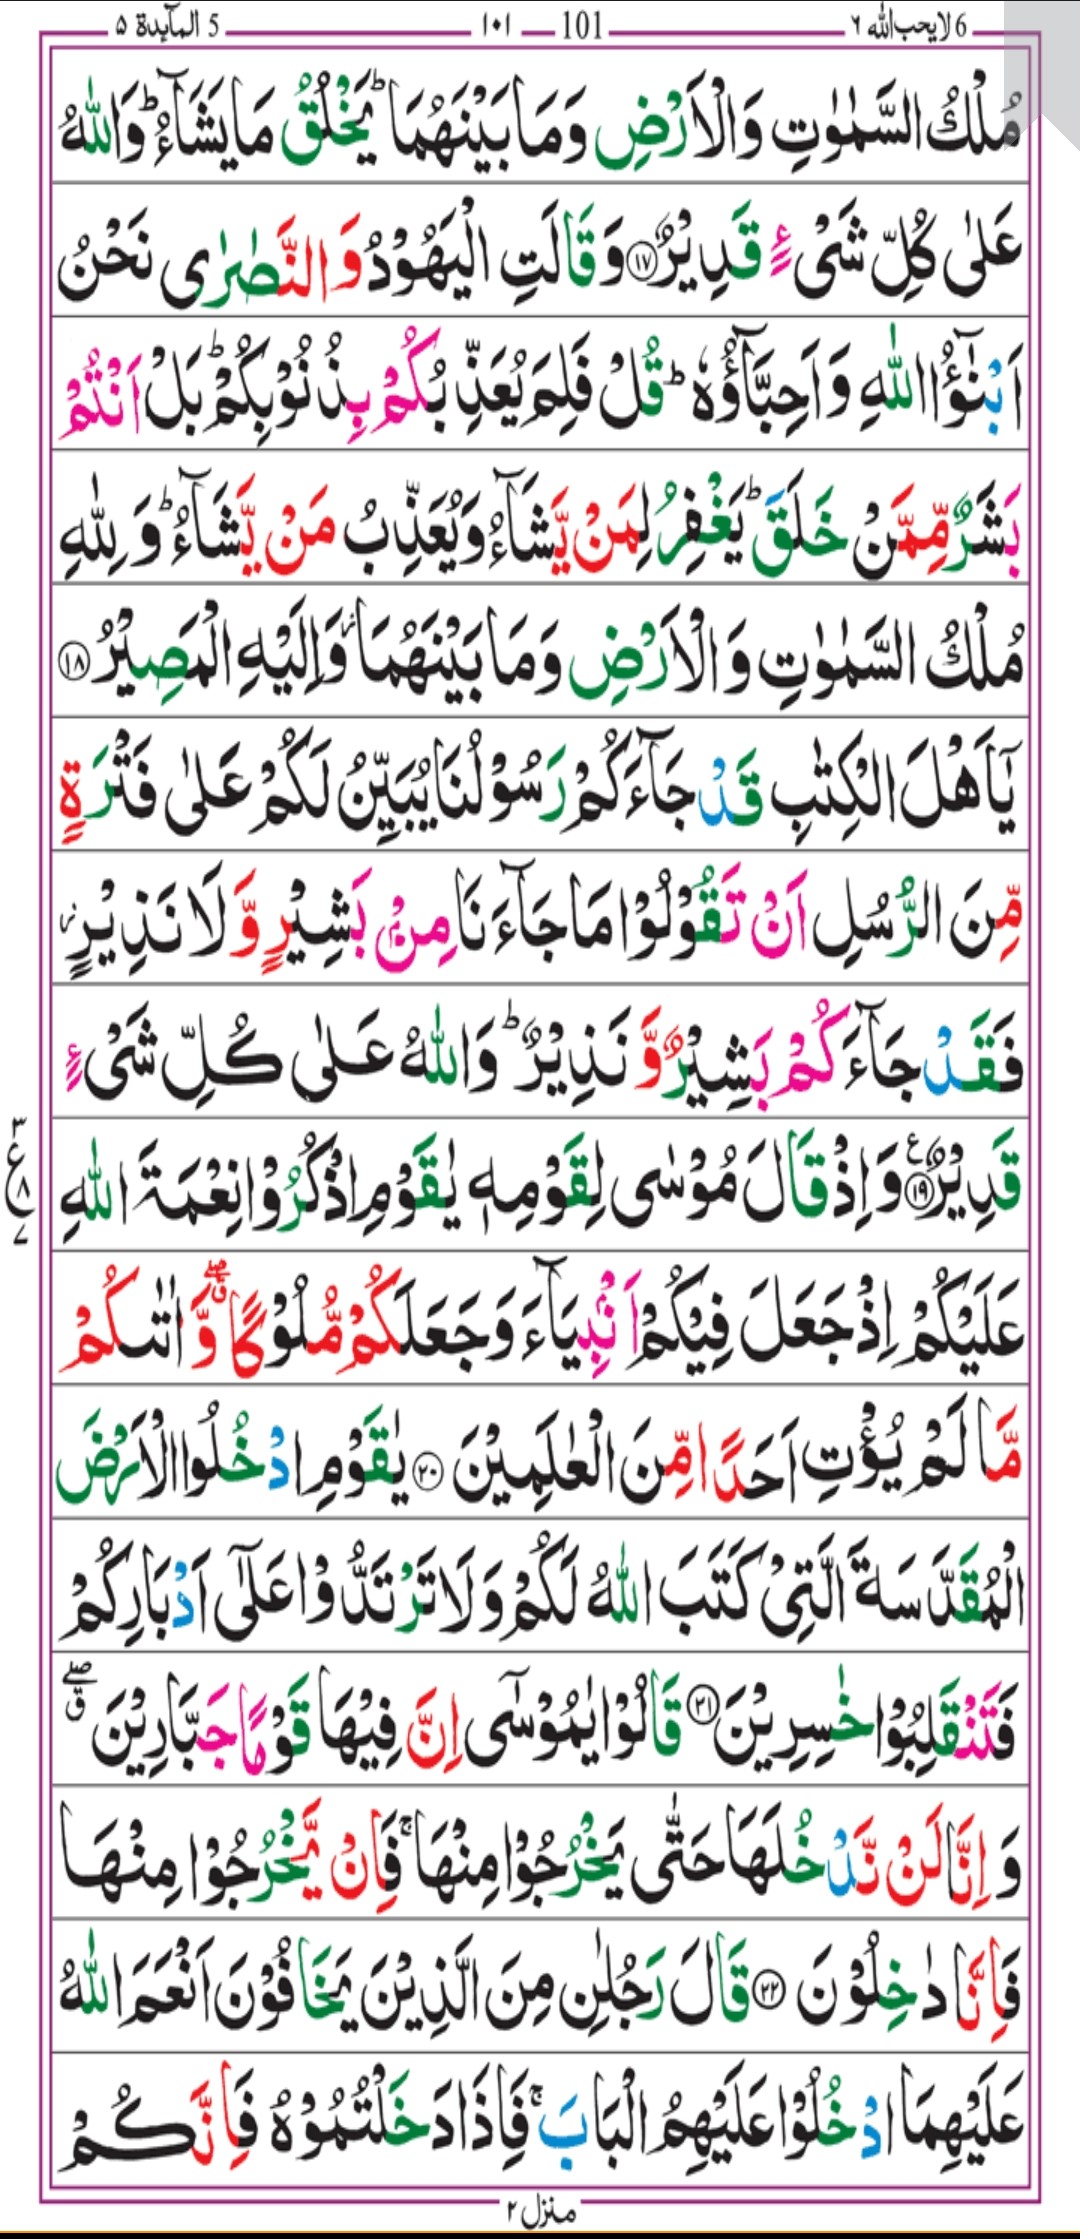 6 لا يحب الله ٦ 101 ١٠١ 5 المآئدة ٥
مُلْكُ السَّمٰوٰتِ وَالْاَرْضِ وَمَا بَيْنَهُمَا ؕ يَخْلُقُ مَا يَشَآءُ ؕ وَاللّٰهُ
عَلٰى كُلِّ شَىْءٍ قَدِيْرٌ ١٧ وَقَالَتِ الْيَهُوْدُ وَالنَّصٰرٰى نَحْنُ
اَبْنٰٓؤُا اللّٰهِ وَاَحِبَّآؤُهٗ ؕ قُلْ فَلِمَ يُعَذِّبُكُمْ بِذُنُوْبِكُمْ ؕ بَلْ اَنْتُمْ
بَشَرٌ مِّمَّنْ خَلَقَ ؕ يَغْفِرُ لِمَنْ يَّشَآءُ وَيُعَذِّبُ مَنْ يَّشَآءُ ؕ وَلِلّٰهِ
مُلْكُ السَّمٰوٰتِ وَالْاَرْضِ وَمَا بَيْنَهُمَا ؗ وَاِلَيْهِ الْمَصِيْرُ ١٨
يٰۤاَهْلَ الْكِتٰبِ قَدْ جَآءَكُمْ رَسُوْلُنَا يُبَيِّنُ لَكُمْ عَلٰى فَتْرَةٍ
مِّنَ الرُّسُلِ اَنْ تَقُوْلُوْا مَا جَآءَنَا مِنْۢ بَشِيْرٍ وَّلَا نَذِيْرٍ ؗ
فَقَدْ جَآءَكُمْ بَشِيْرٌ وَّنَذِيْرٌ ؕ وَاللّٰهُ عَلٰى كُلِّ شَىْءٍ
قَدِيْرٌ ١٩ ع وَاِذْ قَالَ مُوْسٰى لِقَوْمِهٖ يٰقَوْمِ اذْكُرُوْا نِعْمَةَ اللّٰهِ
٣ ع ٨ ٧
عَلَيْكُمْ اِذْ جَعَلَ فِيْكُمْ اَنْۢبِيَآءَ وَجَعَلَكُمْ مُّلُوْكًا ۖۗ وَّاٰتٰىكُمْ
مَّا لَمْ يُؤْتِ اَحَدًا مِّنَ الْعٰلَمِيْنَ ٢٠ يٰقَوْمِ ادْخُلُوا الْاَرْضَ
الْمُقَدَّسَةَ الَّتِىْ كَتَبَ اللّٰهُ لَكُمْ وَلَا تَرْتَدُّوْا عَلٰٓى اَدْبَارِكُمْ
فَتَنْقَلِبُوْا خٰسِرِيْنَ ٢١ قَالُوْا يٰمُوْسٰٓى اِنَّ فِيْهَا قَوْمًا جَبَّارِيْنَ ۖۗ
وَاِنَّا لَنْ نَّدْخُلَهَا حَتّٰى يَخْرُجُوْا مِنْهَا ۚ فَاِنْ يَّخْرُجُوْا مِنْهَا
فَاِنَّا دٰخِلُوْنَ ٢٢ قَالَ رَجُلٰنِ مِنَ الَّذِيْنَ يَخَافُوْنَ اَنْعَمَ اللّٰهُ
عَلَيْهِمَا ادْخُلُوْا عَلَيْهِمُ الْبَابَ ۚ فَاِذَا دَخَلْتُمُوْهُ فَاِنَّكُمْ
منزل ٢